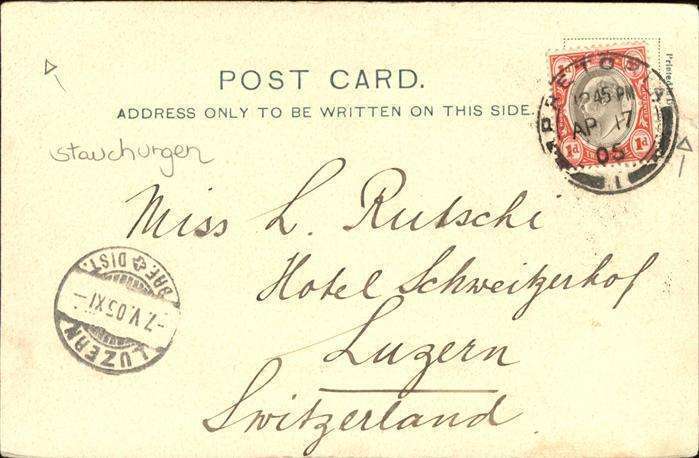 POST CARD.
ADDRESS ONLY TO BE WRITTEN ON THIS SIDE.
Printed in
PRETORIA
12.45 PM
AP 17
05
1
1d 1d
stauchungen
Miss L. Rutschi
Hotel Schweitzerhof
Luzern
Switzerland
LUZERN
-7.V.05 XI-
BRF. DIST.